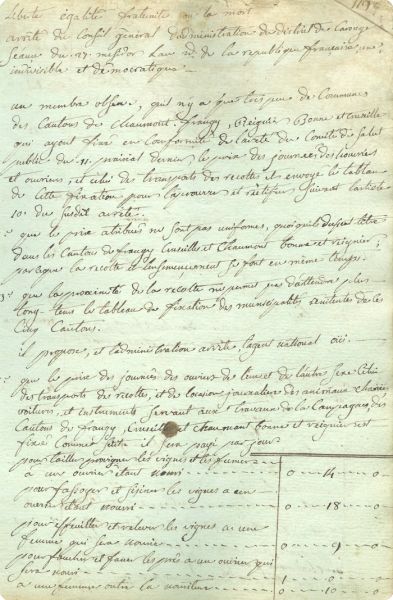 Liberté égalité fraternité ou la mort
arreté du Conseil général d'administration du district de Carouge
Seance du 27 messidor L'an 2d. de la republique francaise, une
indivisible et démocratique.
un membre observe, qu'il n'y a que tres peu de Communes
des Cantons de Chaumont, frangy, Reignier, Bonne et Cruseille
qui ayent fixé en Conformité de l'arreté du Comité de Salut
public du 11. prairial dernier le prix des journées des
et ouvriers, et celui des transports des recoltes et envoyé le tableau
de cette fixation pour l'approuver et rectifier suivant l'article
10. du susdit arreté.
que les prix atribués ne sont pas uniformes, quoiqu'ils dussent l'etre
dans les Cantons de frangy, Cruseilles, et Chaumont bonne et reignier;
parceque la recolte et l'ensemencement se font en même temps.
3° que la proximité de la recolte ne permet pas d'attendre plus
long-tems le tableau de fixation des municipalités, des
Cinq Cantons.
il propose, et l'administration arrête l'agent national oüi.
que le prix des journées des ouvriers de l'un et de l'autre sexe Celui
des transports des recoltes, et de Location journaliere des animaux charrues
voitures, et instruments servant aux travaux de la Campagne des
Cantons de frangy, Cruseilles et chaumont bonne et reignier est
fixé comme suit il sera payé par jour
pour tailler provigner les vignes et les fumer
à un ouvrier étant nourri 0 14 0
pour fassoyer et biner les vignes a un
ouvrier étant nourri 0 18 0
pour effeuiller et relever les vignes a une
femme qui sera nourrie 0 9 0
pour faucher et faner les prés a un ouvrier qui
sera nourri 1 0 0
a une femme outre la nourriture 0 10 0